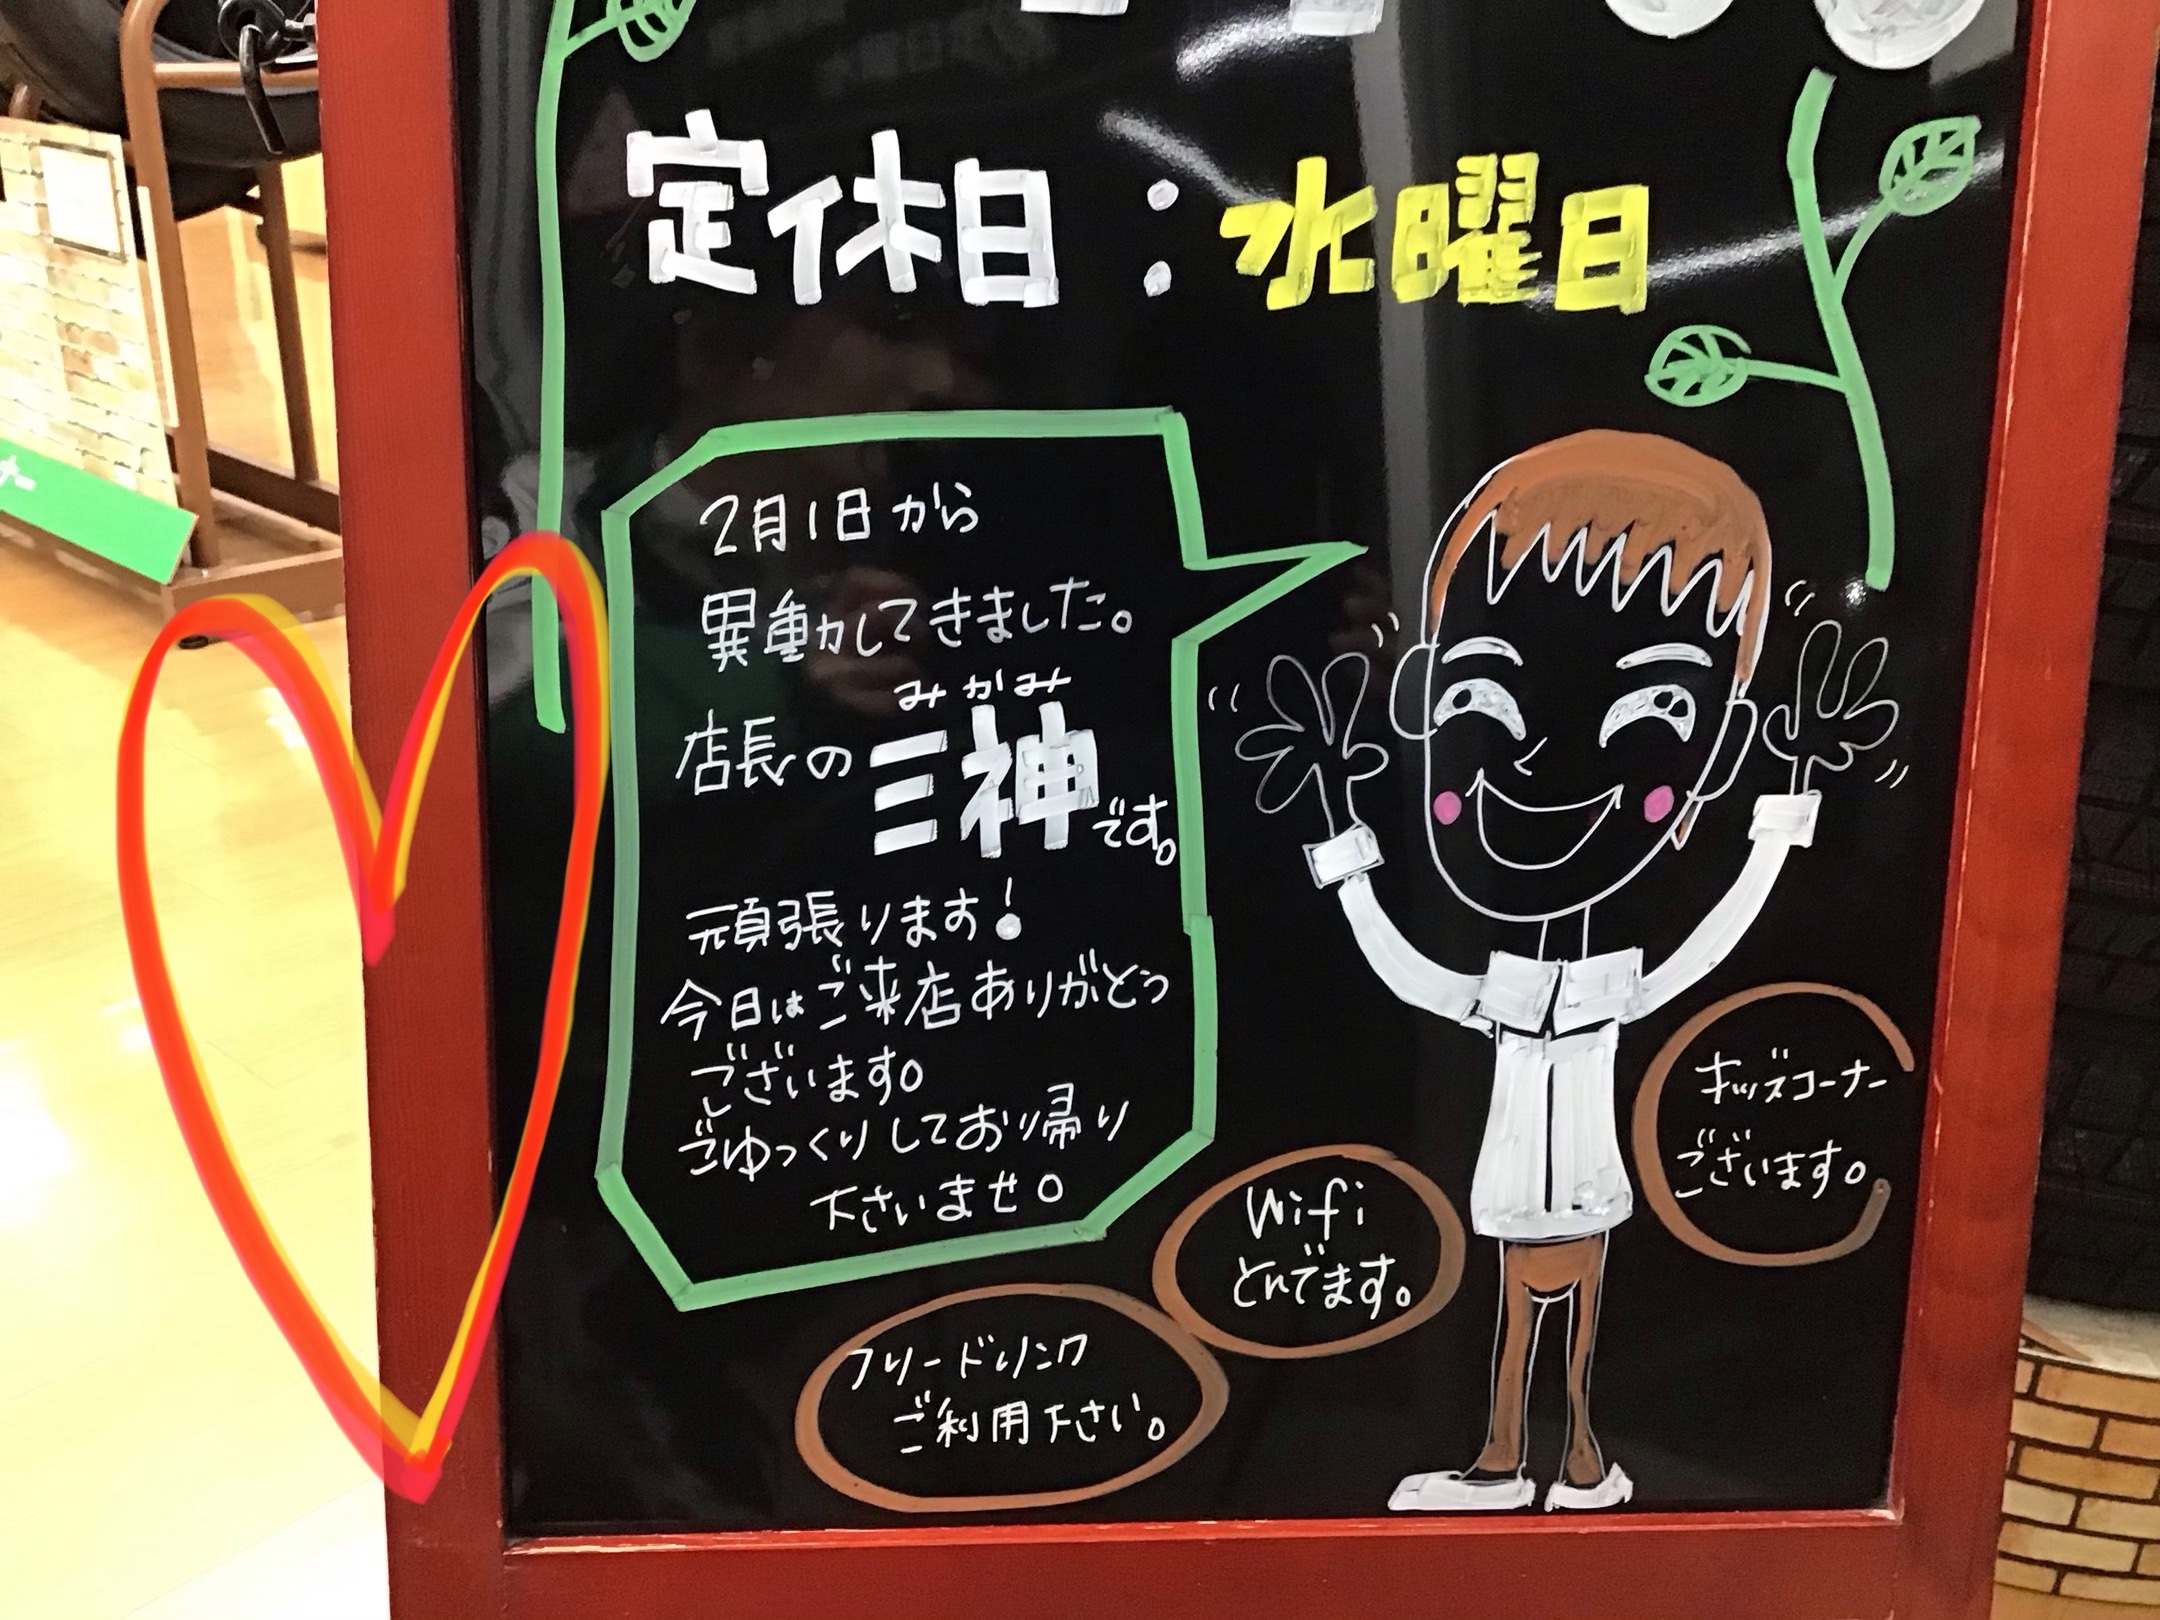 定休日：水曜日
2月1日から
異動してきました。
みかみ
店長の三神です。
頑張ります！
今日はご来店ありがとう
ございます。
ごゆっくりしてお帰り
下さいませ。
キッズコーナー
ございます。
Wifi
とんでます。
フリードリンク
ご利用下さい。